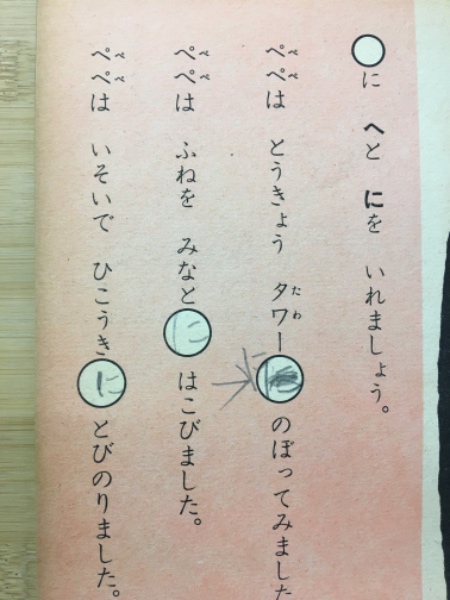 ◯に へと にを いれましょう。
ぺぺは とうきょう タワー に のぼってみました
ぺぺは ふねを みなと に はこびました。
ぺぺは いそいで ひこうき に とびのりました。